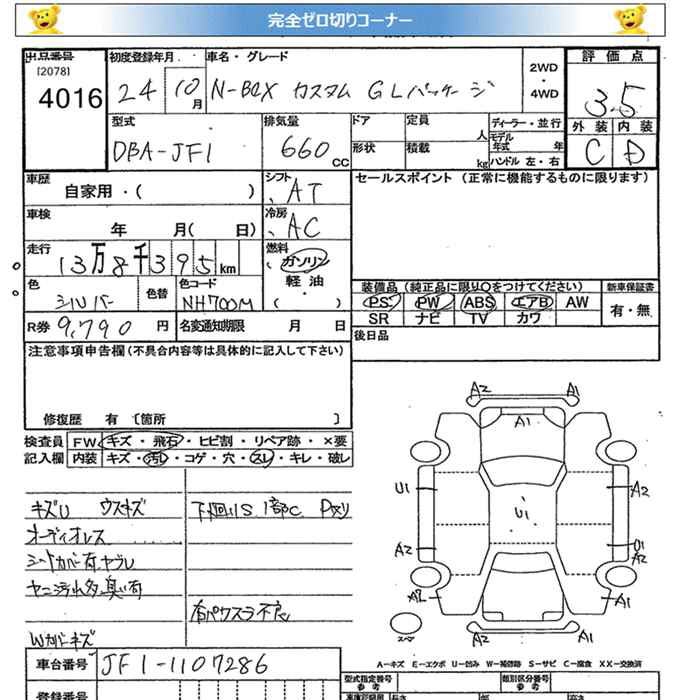 完全ゼロ切りコーナー
出品番号 初度登録年月 車名・グレード 2WD・4WD 評価点
[2078]
4016 24 10月 N-BOX カスタム GLパッケージ 3.5
型式 排気量 ドア 定員 人 ディーラー・並行 外装 内装
DBA-JF1 660cc 形状 積載 kg モデル年式 年 C D
ハンドル 左・右
車歴 自家用・( ) シフト AT セールスポイント (正常に機能するものに限ります)
車検 年 月( 日) 冷房 AC
走行 13万8千395km 燃料 ガソリン 軽油・( )
色 シルバー 色替 色コード NH700M 装備品 (純正品に限り○をつけてください) 新車保証書
PS PW ABS エアB AW 有・無
SR ナビ TV カワ
R券 9,790円 名変通知期限 月 日 後日品
注意事項申告欄(不具合内容等は具体的に記入して下さい)
修復歴 有 [箇所 ]
検査員 FW キズ・飛石・ヒビ割・リペア跡・×要
記入欄 内装 キズ・汚レ・コゲ・穴・スレ・キレ・破レ
キズU ウスキズ 下回りS 1部C
オーディオレス
シートカバー有
ヤニ汚れ多 臭い有
右パワスラ不良
A2 A1
A1
U1 A2
U1
A2 U1 A2
A2 A1
スペア
A2 A1
A-キズ E-エクボ U-凹み W-補修跡 S-サビ C-腐食 XX-交換済
車台番号 JF1-1107286
型式指定番号 参考 類別区分番号 参考
登録番号